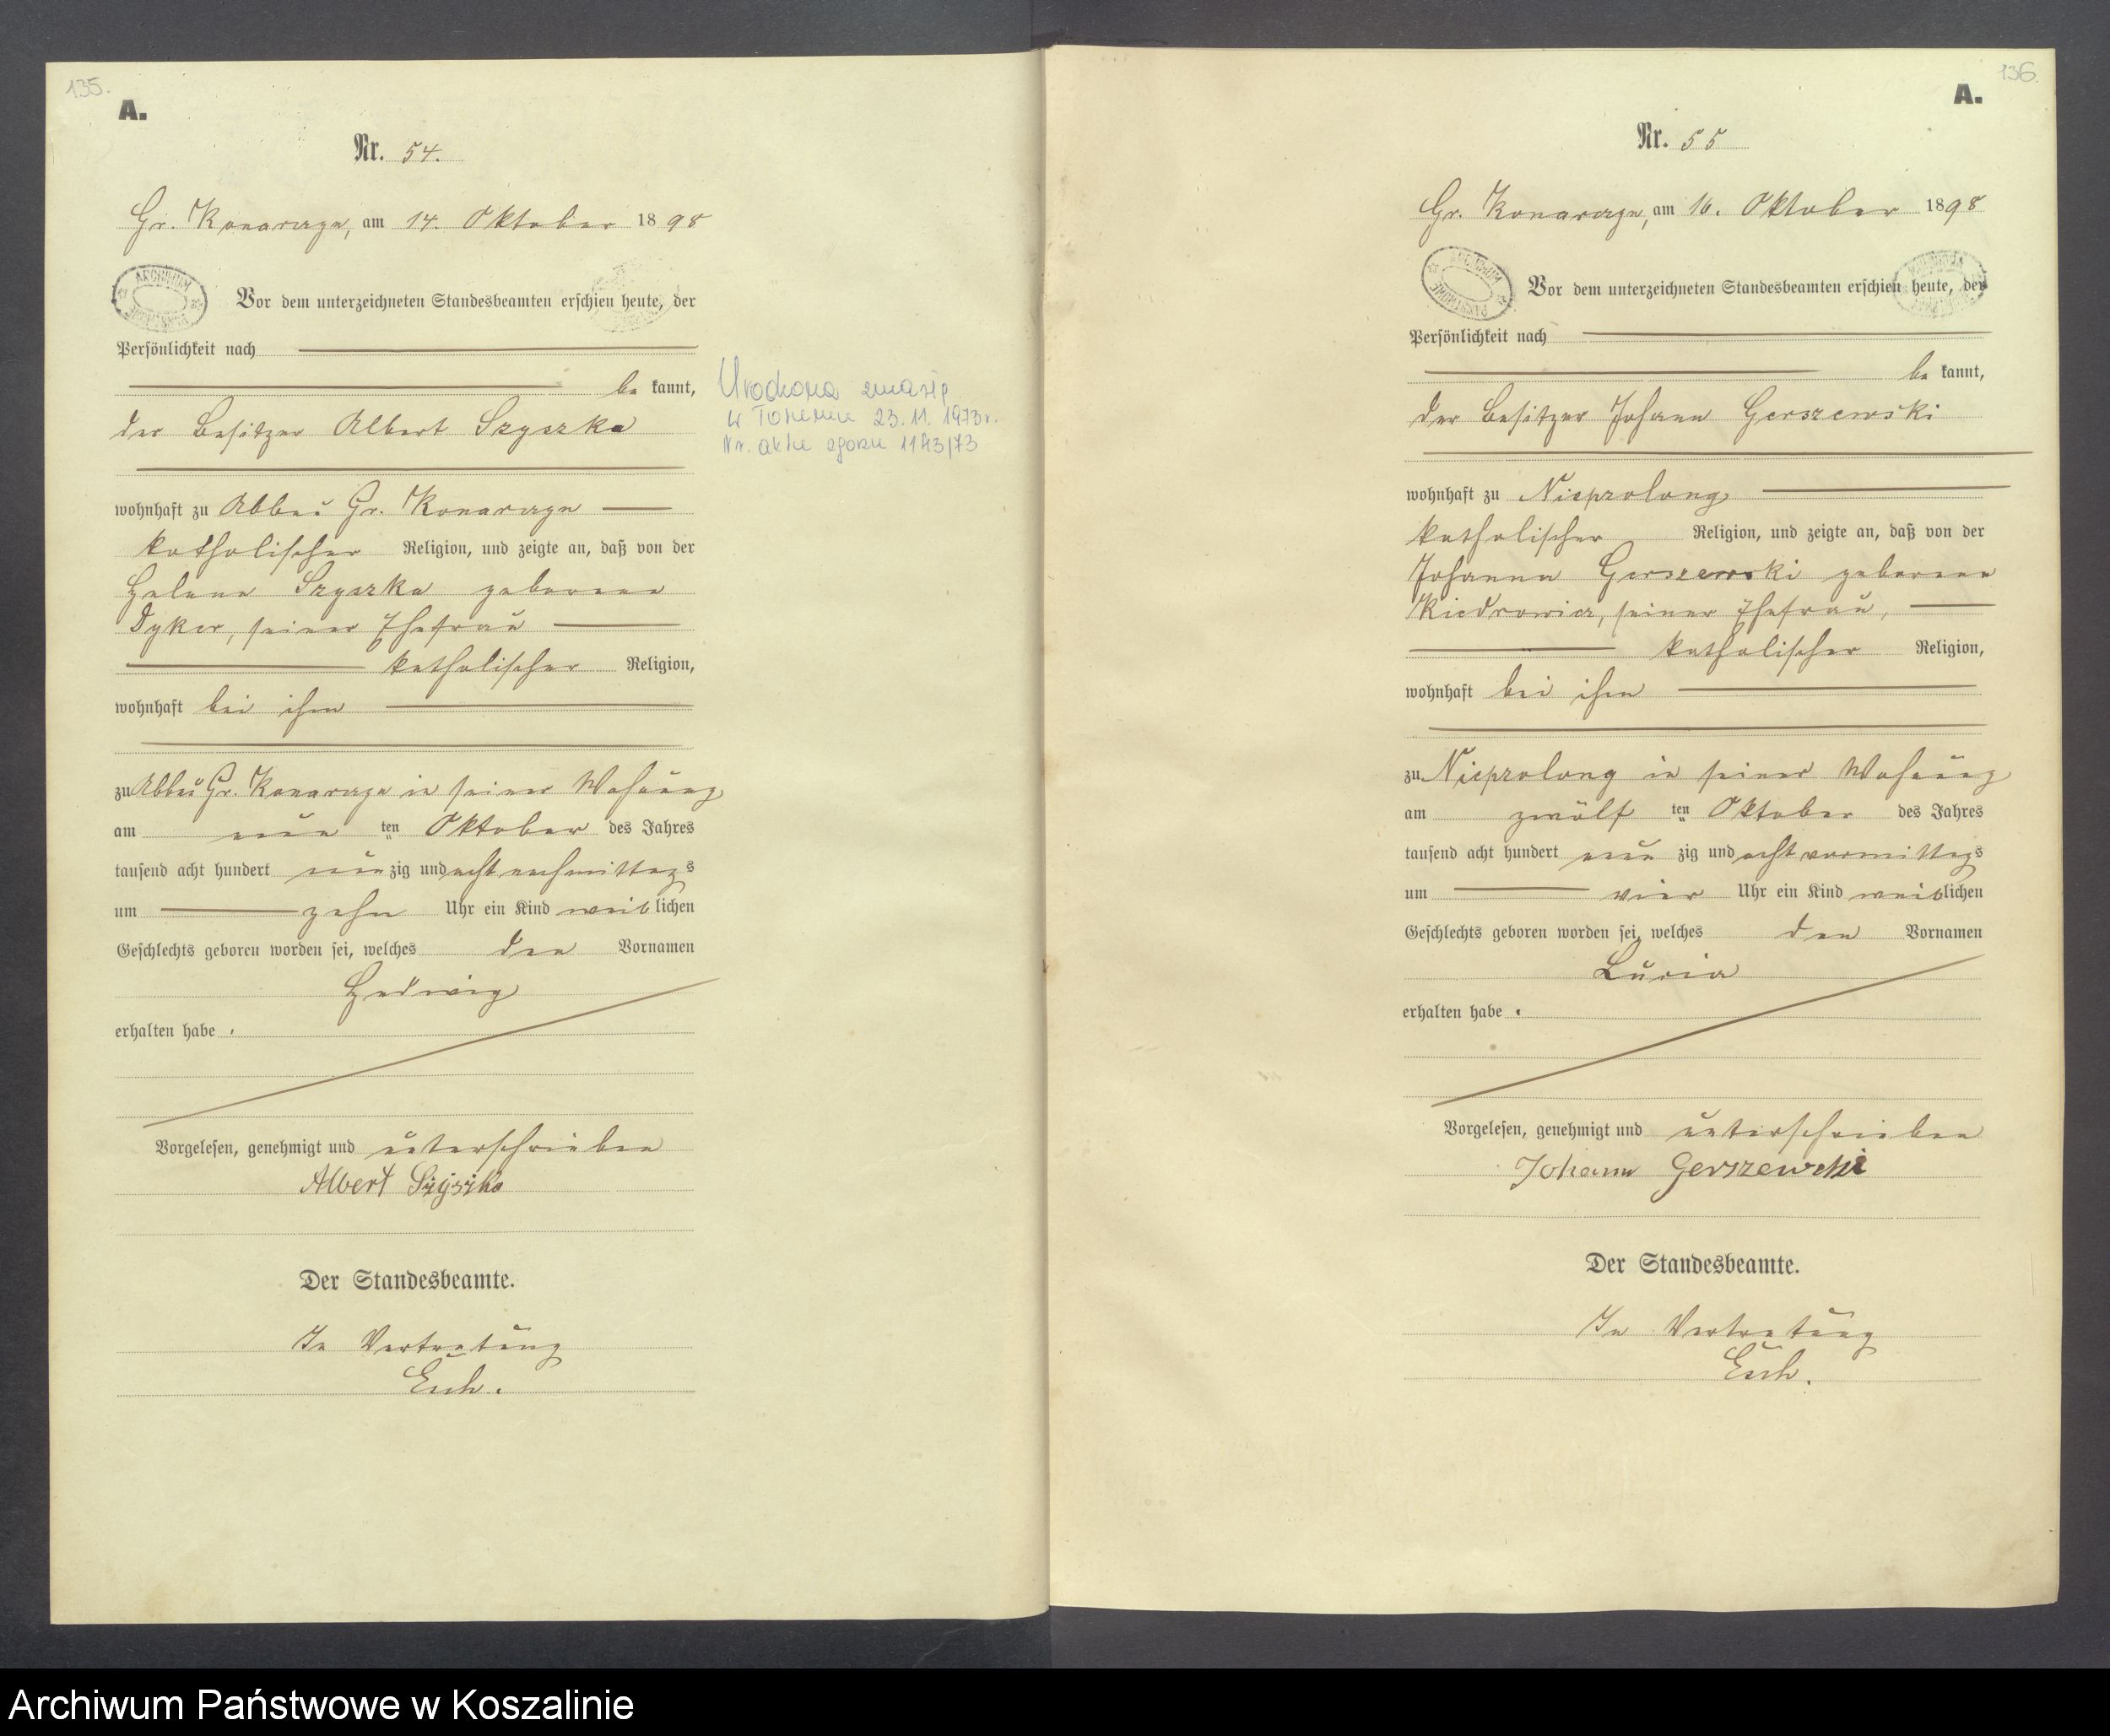 135.
A.
Nr. 54.
Gr. Konarczyn, am 14. Oktober 1898
ARCHIWUM PAŃSTWOWE
Vor dem unterzeichneten Standesbeamten erschien heute, der
Persönlichkeit nach
be kannt,
der Besitzer Albert Szyszka
wohnhaft zu Abbau Gr. Konarczyn
katholischer Religion, und zeigte an, daß von der
Helene Szyszka geborene
Dyker, seiner Ehefrau
katholischer Religion,
wohnhaft bei ihm
zu Abbau Gr. Konarczyn in seiner Wohnung
am neun ten Oktober des Jahres
tausend acht hundert neun zig und acht nachmittags
um zehn Uhr ein Kind weiblichen
Geschlechts geboren worden sei, welches den Vornamen
Hedwig
erhalten habe.
Vorgelesen, genehmigt und unterschrieben
Albert Szyszka
Der Standesbeamte.
In Vertretung
Urodzona zmarła
w Toruniu 23.11.1973r.
Nr. aktu zgonu 1143/73
136.
A.
Nr. 55
Gr. Konarczyn, am 16. Oktober 1898
ARCHIWUM PAŃSTWOWE
Vor dem unterzeichneten Standesbeamten erschien heute, der
Persönlichkeit nach
be kannt,
der Besitzer Johann Gerszewski
wohnhaft zu Nieprzolong
katholischer Religion, und zeigte an, daß von der
Johanna Gerszewski geborene
Kiedrowicz, seiner Ehefrau,
katholischer Religion,
wohnhaft bei ihm
zu Nieprzolong in seiner Wohnung
am zwölf ten Oktober des Jahres
tausend acht hundert neun zig und acht vormittags
um vier Uhr ein Kind weiblichen
Geschlechts geboren worden sei, welches den Vornamen
Lucia
erhalten habe.
Vorgelesen, genehmigt und unterschrieben
Johann Gerszewski
Der Standesbeamte.
In Vertretung
Archiwum Państwowe w Koszalinie